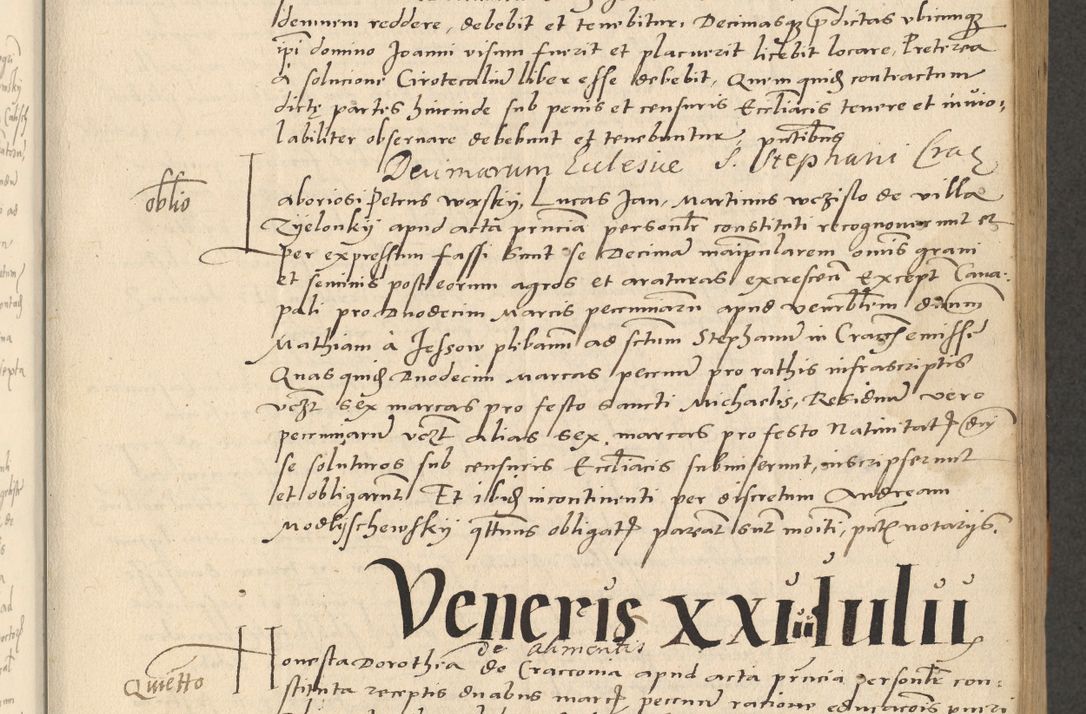 idemnem reddere, debebit et tenebitur, Decimasq3 pdictas vbicunq3
ipi domino Joanni visum fuerit et placuerit licebit locare, Preterea
a solucione Cirotecaliu liber esse debebit, Quem quid contractum
dicte partes hincinde sub penis et censuris Eccliacis tenere et inuio,
labiliter obseruare debebunt et tenebuntur, pntibus
Decimarum Eclesiae S. Stephani Crac
oblio
Laboriosi Petrus Warsky, Lucas Jan, Martinus Wczislo de villa
Zyelonky apud acta pnncia personlr constituti recognouerunt et
per expressum fassi sunt se Decima maipularem omis grani
et seminis post eorum agros et araturas excrescen Except Cana,
pali pro Duodecim Marcis pecuniaru apud venerblem dnum
Mathiam à Jessow plibanu ad sctum Stephanu in Crac emisse
Quas quid Duodecim Marcas pecun pro rathis infrascriptis
vczt sex marcas pro festo Sancti Michaelis, Residuu vero
pecuniaru vczt alias sex marcas pro festo Natiuitat dni
se soluturos sub censuris Eccliacis submiserunt, inscripserunt
et obligarunt Et ibid incontinenti per discretum Andream
Modlyschewsky qttnus obligat pareat sunt moiti, pnt notarijs.
Veneris xxiiii Iulii
de alimentis
Quietto
Honesta Dorothea de Cracouia apud acta pnncia personlr con,
stituta receptis duabus marc pecun ratione educacois pueri